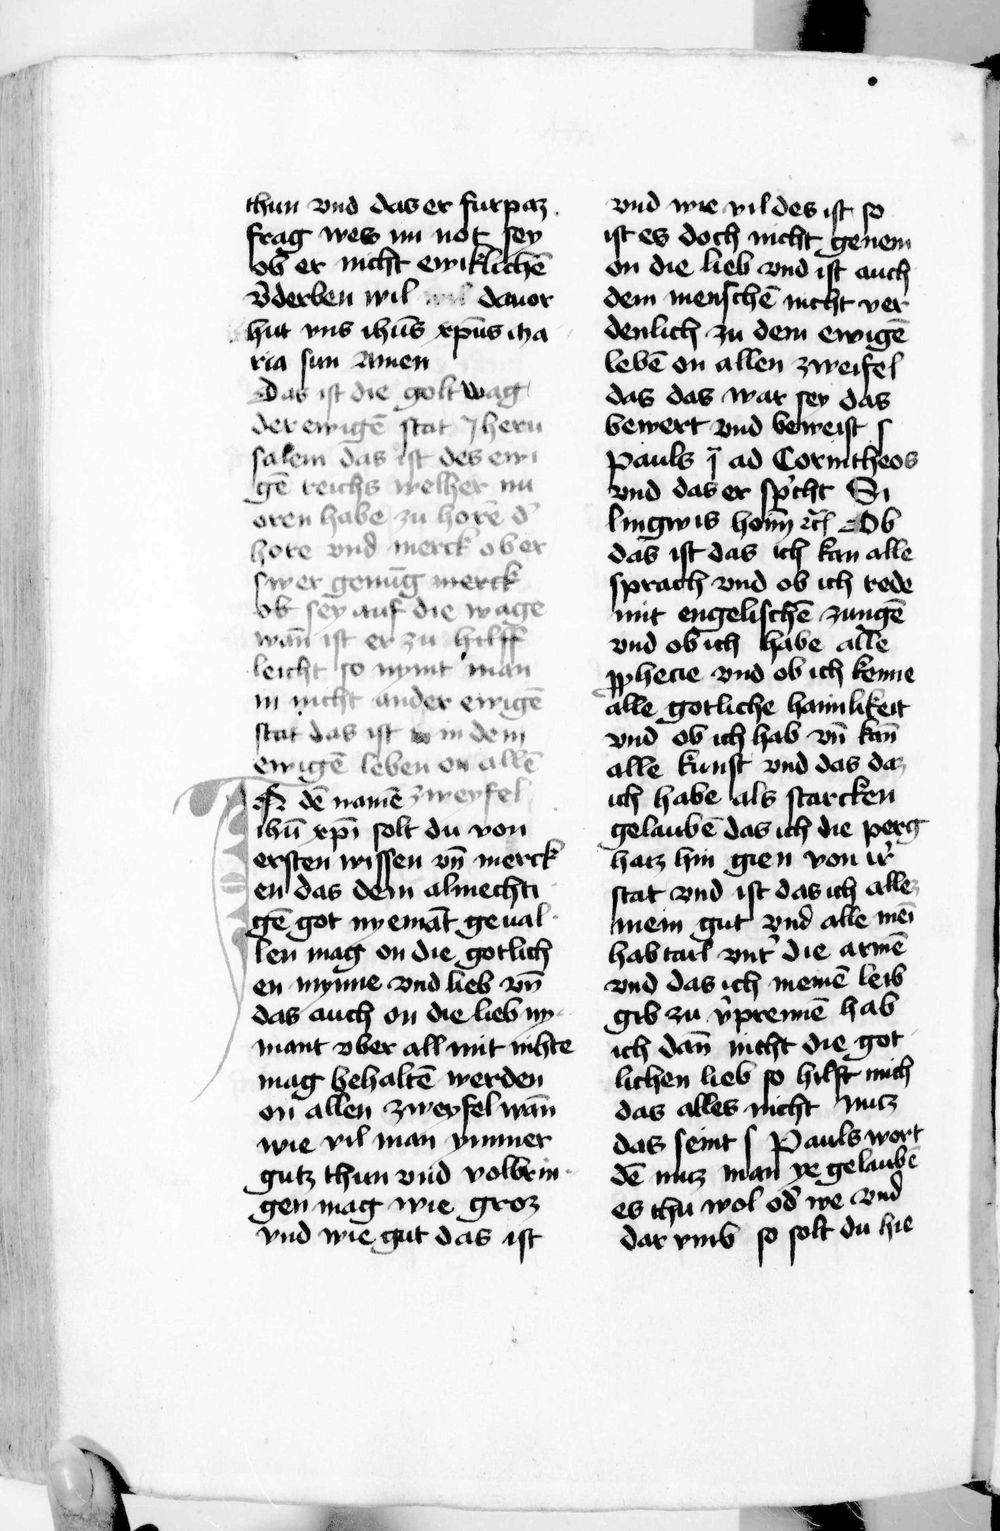 thun vnd das er furpaz
frag wes im not sey
ob er nicht ewiklichē
v̓derben wil wil dauor
hut vns ihūs xp̄us ma
ria sun Amen
Das ist die golt wag
der ewigē stat Jheru
salem das ist des ewi
gē reichs welher nu
oren habe zu horē d̓
hore vnd merck ob er
swer genūg merck
ob sey auf die wage
wan̄ ist er zu hilff
leicht so nymt man
in nicht ander ewigē
stat das ist in dem
ewigē leben on allē
zweyfel
IN dē namē
ihū xp̄i solt du von
ersten wissen vn̄ merck
en das dem almechti
gē got nyemāt geual
len mag on die gotlich
en mynne vnd lieb vn̄
das auch on die lieb ny
mant vber all mit nihte
mag behaltē werden
on allen zweyfel wān
wie vil man ymmer
gutz thun vnd volbrin
gen mag wie groz
vnd wie gut das ist
vnd wie vil des ist so
ist es doch nicht genem
on die lieb vnd ist auch
dem menschē nicht ver
denlich zu dem ewigē
lebē on allen zweifel
das das war sey das
bewert vnd beweist s
Pauls j̄ ad Corintheos
vnd das er sp̓cht Si
lingwis hom̄ rc̄ Ob
das ist das ich kan alle
sprach vnd ob ich rede
mit engelischē zungē
vnd ob ich habe alle
ꝓphecie vnd ob ich kenne
alle gotliche haimlikeit
vnd ob ich hab vn̄ kan̄
alle kunst vnd das daz
ich habe als starcken
gelaubē das ich die perg
haiz hin gien von ir̓
stat vnd ist das ich allez
mein gut vnd alle mei̅
hab tail vnt̓ die armē
vnd das ich meinē leib
gib zu v̓prennē hab
ich dan̄ nicht die got
lichen lieb so hilft mich
das alles nicht nutz
das seint s Pauls wort
dē muz man ye gelaubē
es thu wol od̓ we vnd
dar vmb so solt du hie